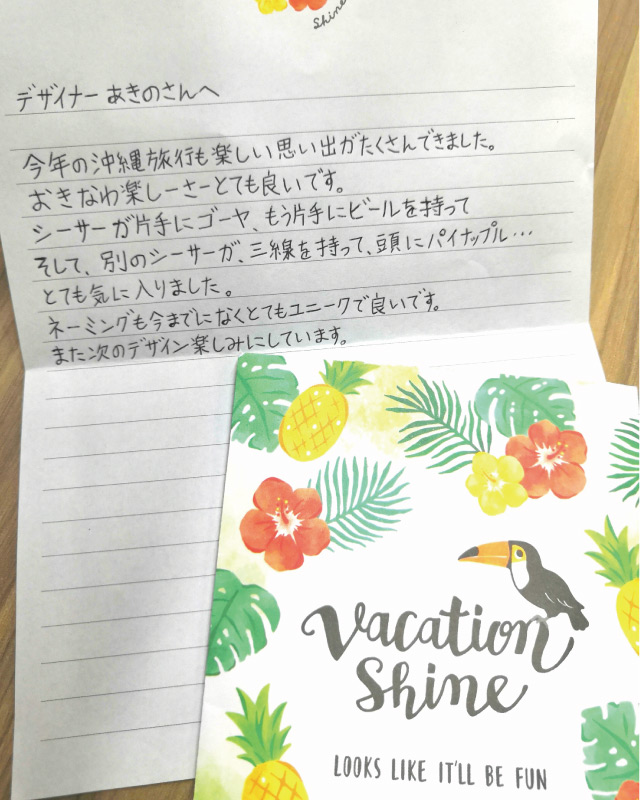 Shine
デザイナーあきのさんへ
今年の沖縄旅行も楽しい思い出がたくさんできました。
おきなわ楽しーさーとても良いです。
シーサーが片手にゴーヤ、もう片手にビールを持って
そして、別のシーサーが、三線を持って、頭にパイナップル…
とても気に入りました。
ネーミングも今までになくとてもユニークで良いです。
また次のデザイン楽しみにしています。
Vacation
Shine
LOOKS LIKE IT'LL BE FUN